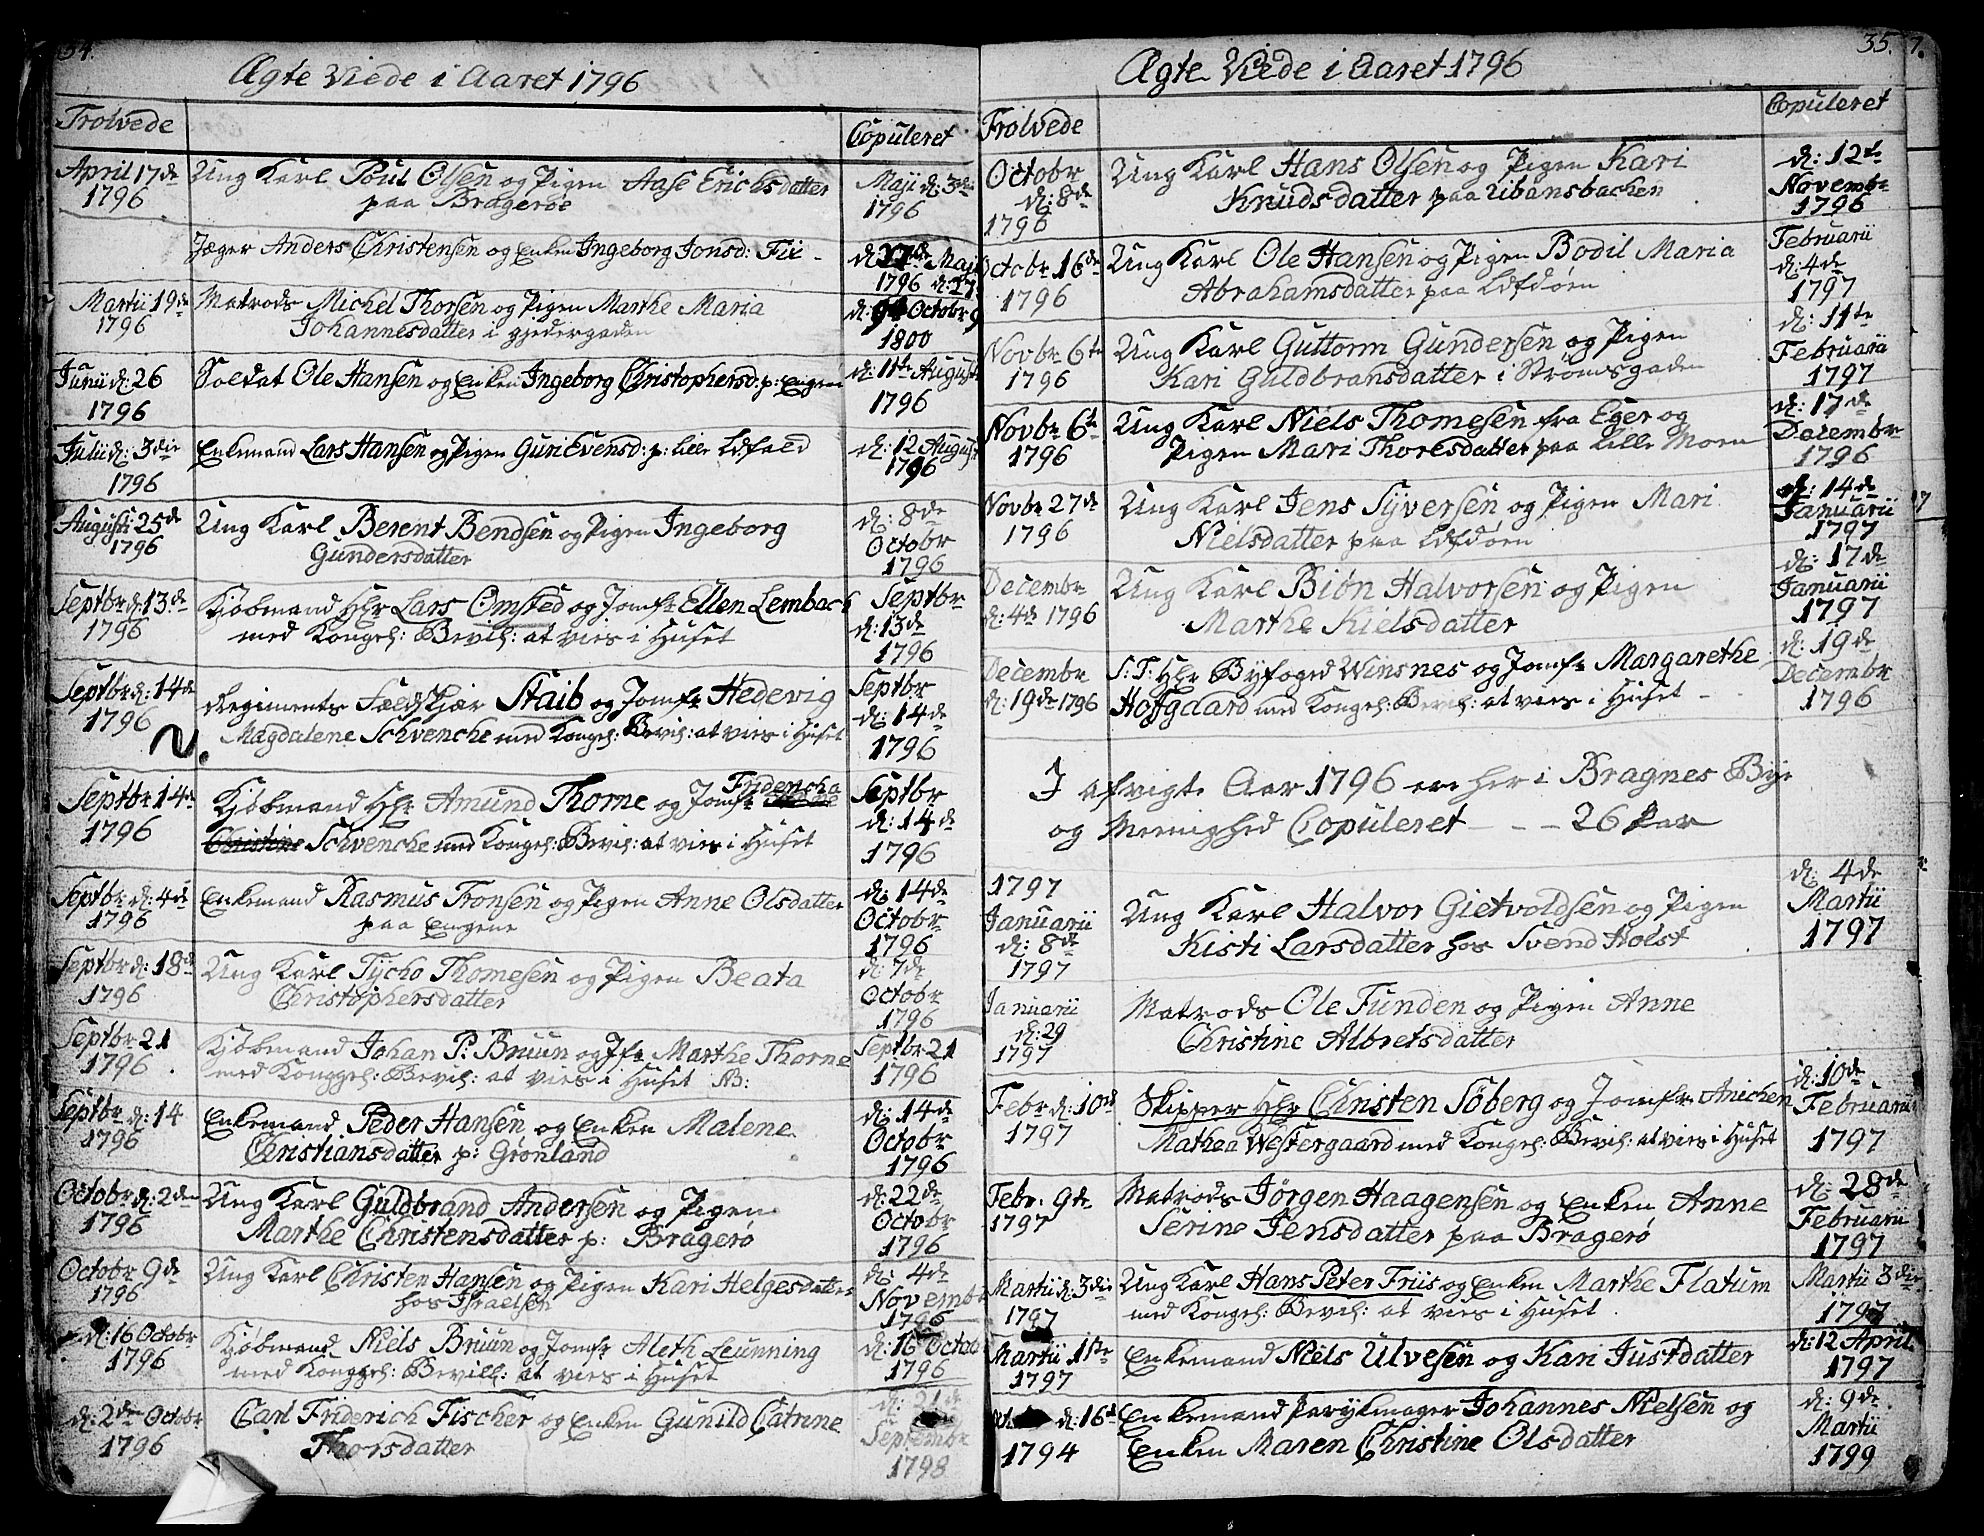 34.
Ægte Viede i Aaret 1796
Trolvede
Copuleret
April 17de
1796
Ung Karl Poul Olsen og Pigen Aase Ericksdatter
paa Bragerøe
Maji d: 3die
1796
Jæger Anders Christensen og Enken Ingeborg Jonsd: Fii
Maji
1796 d: 27
Martii 19de
1796
Matrods Michel Thorsen og Pigen Marthe Maria
Johannesdatter i gjedergaden
Octobr
1800
Junii d: 26
1796
Soldat Ole Hansen og Enken Ingeborg Christophersd: p: Engen
d: 11te August
1796
Julii d: 3die
1796
Enkemand Lars Hansen og Pigen Guri Evensd: p: lille
d: 12 August
1796
August: 25de
1796
Ung Karl Berent Bendsen og Pigen Ingeborg
Gundersdatter
d: 8de
Octobr
1796
Septbr d: 13de
1796
Kjøbmand Hr Lars Omsted og Jomfr Ellen Lembach
med Kongel: Bevil: at vies i Huset
Septbr
d: 13de
1796
Septbr d: 14de
1796
Regiments Feldskjær Staib og Jomfr Hedevig
Magdalene Schvencke med Kongel: Bevil: at vies i Huset
Septbr
d: 14de
1796
Septbr 14de
1796
Fridericha
Kjøbmand Hr Amund Thorne og Jomfr
Christine Schvencke med Kongel: Bevil: at vies i Huset
Septbr
d: 14de
1796
Septbr d: 4de
1796
Enkemand Rasmus Tronsen og Pigen Anne Olsdatter
paa Engene
d: 14de
Octobr
1796
Septbr d: 18de
1796
Ung Karl Tycho Thomesen og Pigen Beata
Christophersdatter
d: 7de
Octobr
1796
Septbr 21
1796
Kjøbmand Johan P: Bruun og Jfr Marthe Thorne
med Konggel: Bevil: at vies i Huset NB:
Septbr 21
1796
Septbr d: 14
1796
Enkemand Peder Hansen og Enken Malene
Christiansdatter p: Grønland
d: 14de
Octobr
1796
Octobr d: 2den
1796
Ung Karl Guldbrand Andersen og Pigen
Marthe Christensdatter p: Bragerø
d: 22de
Octobr
1796
Octobr 9de
1796
Ung Karl Christen Hansen og Pigen Kari Helgesdatter
hos Israelsen
d: 4de
Novembr
1796
d: 16 Octobr
1796
Kjøbmand Niels Bruun og Jomfr Aleth Leunning
med Konggel: Bevill: at vies i Huset
d: 16 Octobr
1796
d: 2den Octobr
1796
Carl Friderich Fischer og Enken Gunild Catrine
Thorsdatter
d: 21de
Septembr
1798
35.
Ægte Viede i Aaret 1796
Trolvede
Copuleret
Octobr
d: 8de
1796
Ung Karl Hans Olsen og Pigen Kari
Knudsdatter paa Ubansbacken
d: 12te
Novembr
1796
Octobr 16de
1796
Ung Karl Ole Hansen og Pigen Bodil Maria
Abrahamsdatter paa
Februarii
d: 4de
1797
Novbr 6te
1796
Ung Karl Guttorm Gundersen og Pigen
Kari Guldbransdatter i Strømsgaden
d: 11te
Februarii
1797
Novbr 6te
1796
Ung Karl Niels Thomesen fra Eger og
Pigen Mari Thoresdatter paa lille Moen
d: 17de
Decembr
1796
Novbr 27de
1796
Ung Karl Jens Syversen og Pigen Mari
Nielsdatter paa
d: 14de
Januarii
1797
Decembr
d: 4de 1796
Ung Karl Biøn Halvorsen og Pigen
Marthe Kielsdatter
d: 17de
Januarii
1797
Decembr
d: 19de 1796
S: T: Hr Byfoged Winsnes og Jomfr Margarethe
Hofgaard med Kongel: Bevil: at vies i Huset
d: 19de
Decembr
1796
I afvigte Aar 1796 ere her i Bragnes Bye
og Menighed Copuleret - - - 26 Par
1797
Januarii
d: 8de
1797
Ung Karl Halvor Gietvoldsen og Pigen
Kisti Larsdatter hos Svend Holst
d: 4de
Martii
1797
Januarii
d: 29
1797
Matrods Ole Funden og Pigen Anne
Christine Albretsdatter
Febr d: 10de
1797
Skipper Hr Christen Søberg og Jomfr Anichen
Mathea Westergaard med Kongel: Bevil: at vies i Huset
d: 10de
Februarii
1797
Febr. 9de
1797
Matrods Jörgen Haagensen og Enken Anne
Serine Jensdatter paa Bragerø
d: 28de
Februarii
1797
Martii d: 3die
1797
Ung Karl Hans Peter Friis og Enken Marthe Flatum
med Kongel: Bevil: at vies i Huset
Martii 3die
1797
Martii 1ste
1797
Enkemand Niels Ulvesen og Kari Justdatter
d: 12 April
1797
d: 16de
1794
Enkemand Parykmager Johannes Nielsen og
Enken Maren Christine Olsdatter
d: 9de
Martii
1799